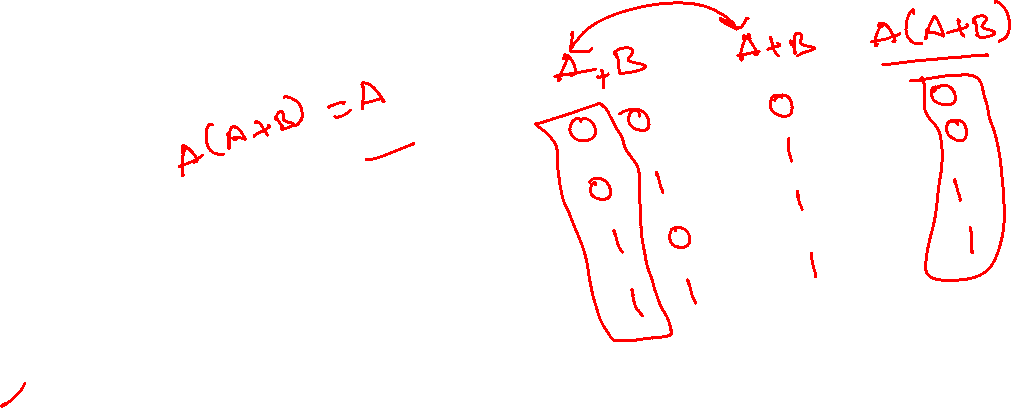 A(A+B) = A
A + B A+B A(A+B)
0 0 0 0
0 1 1 0
1 0 1 1
1 1 1 1